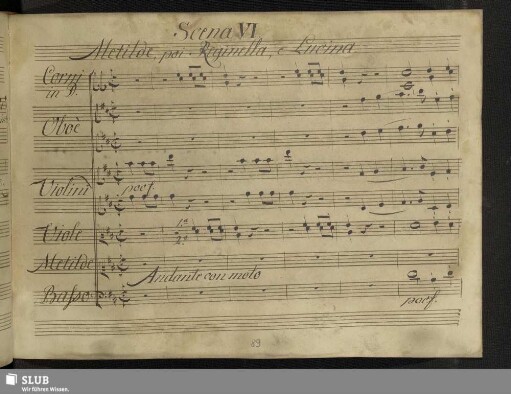 Scena VI
Metilde, poi Reginella, e Lucina
Corni
in D.
Oboè
Violini
poof
Viole
1.º
2.º
Metilde
Andante con moto
Basso
poof.
SLUB
Wir führen Wissen.